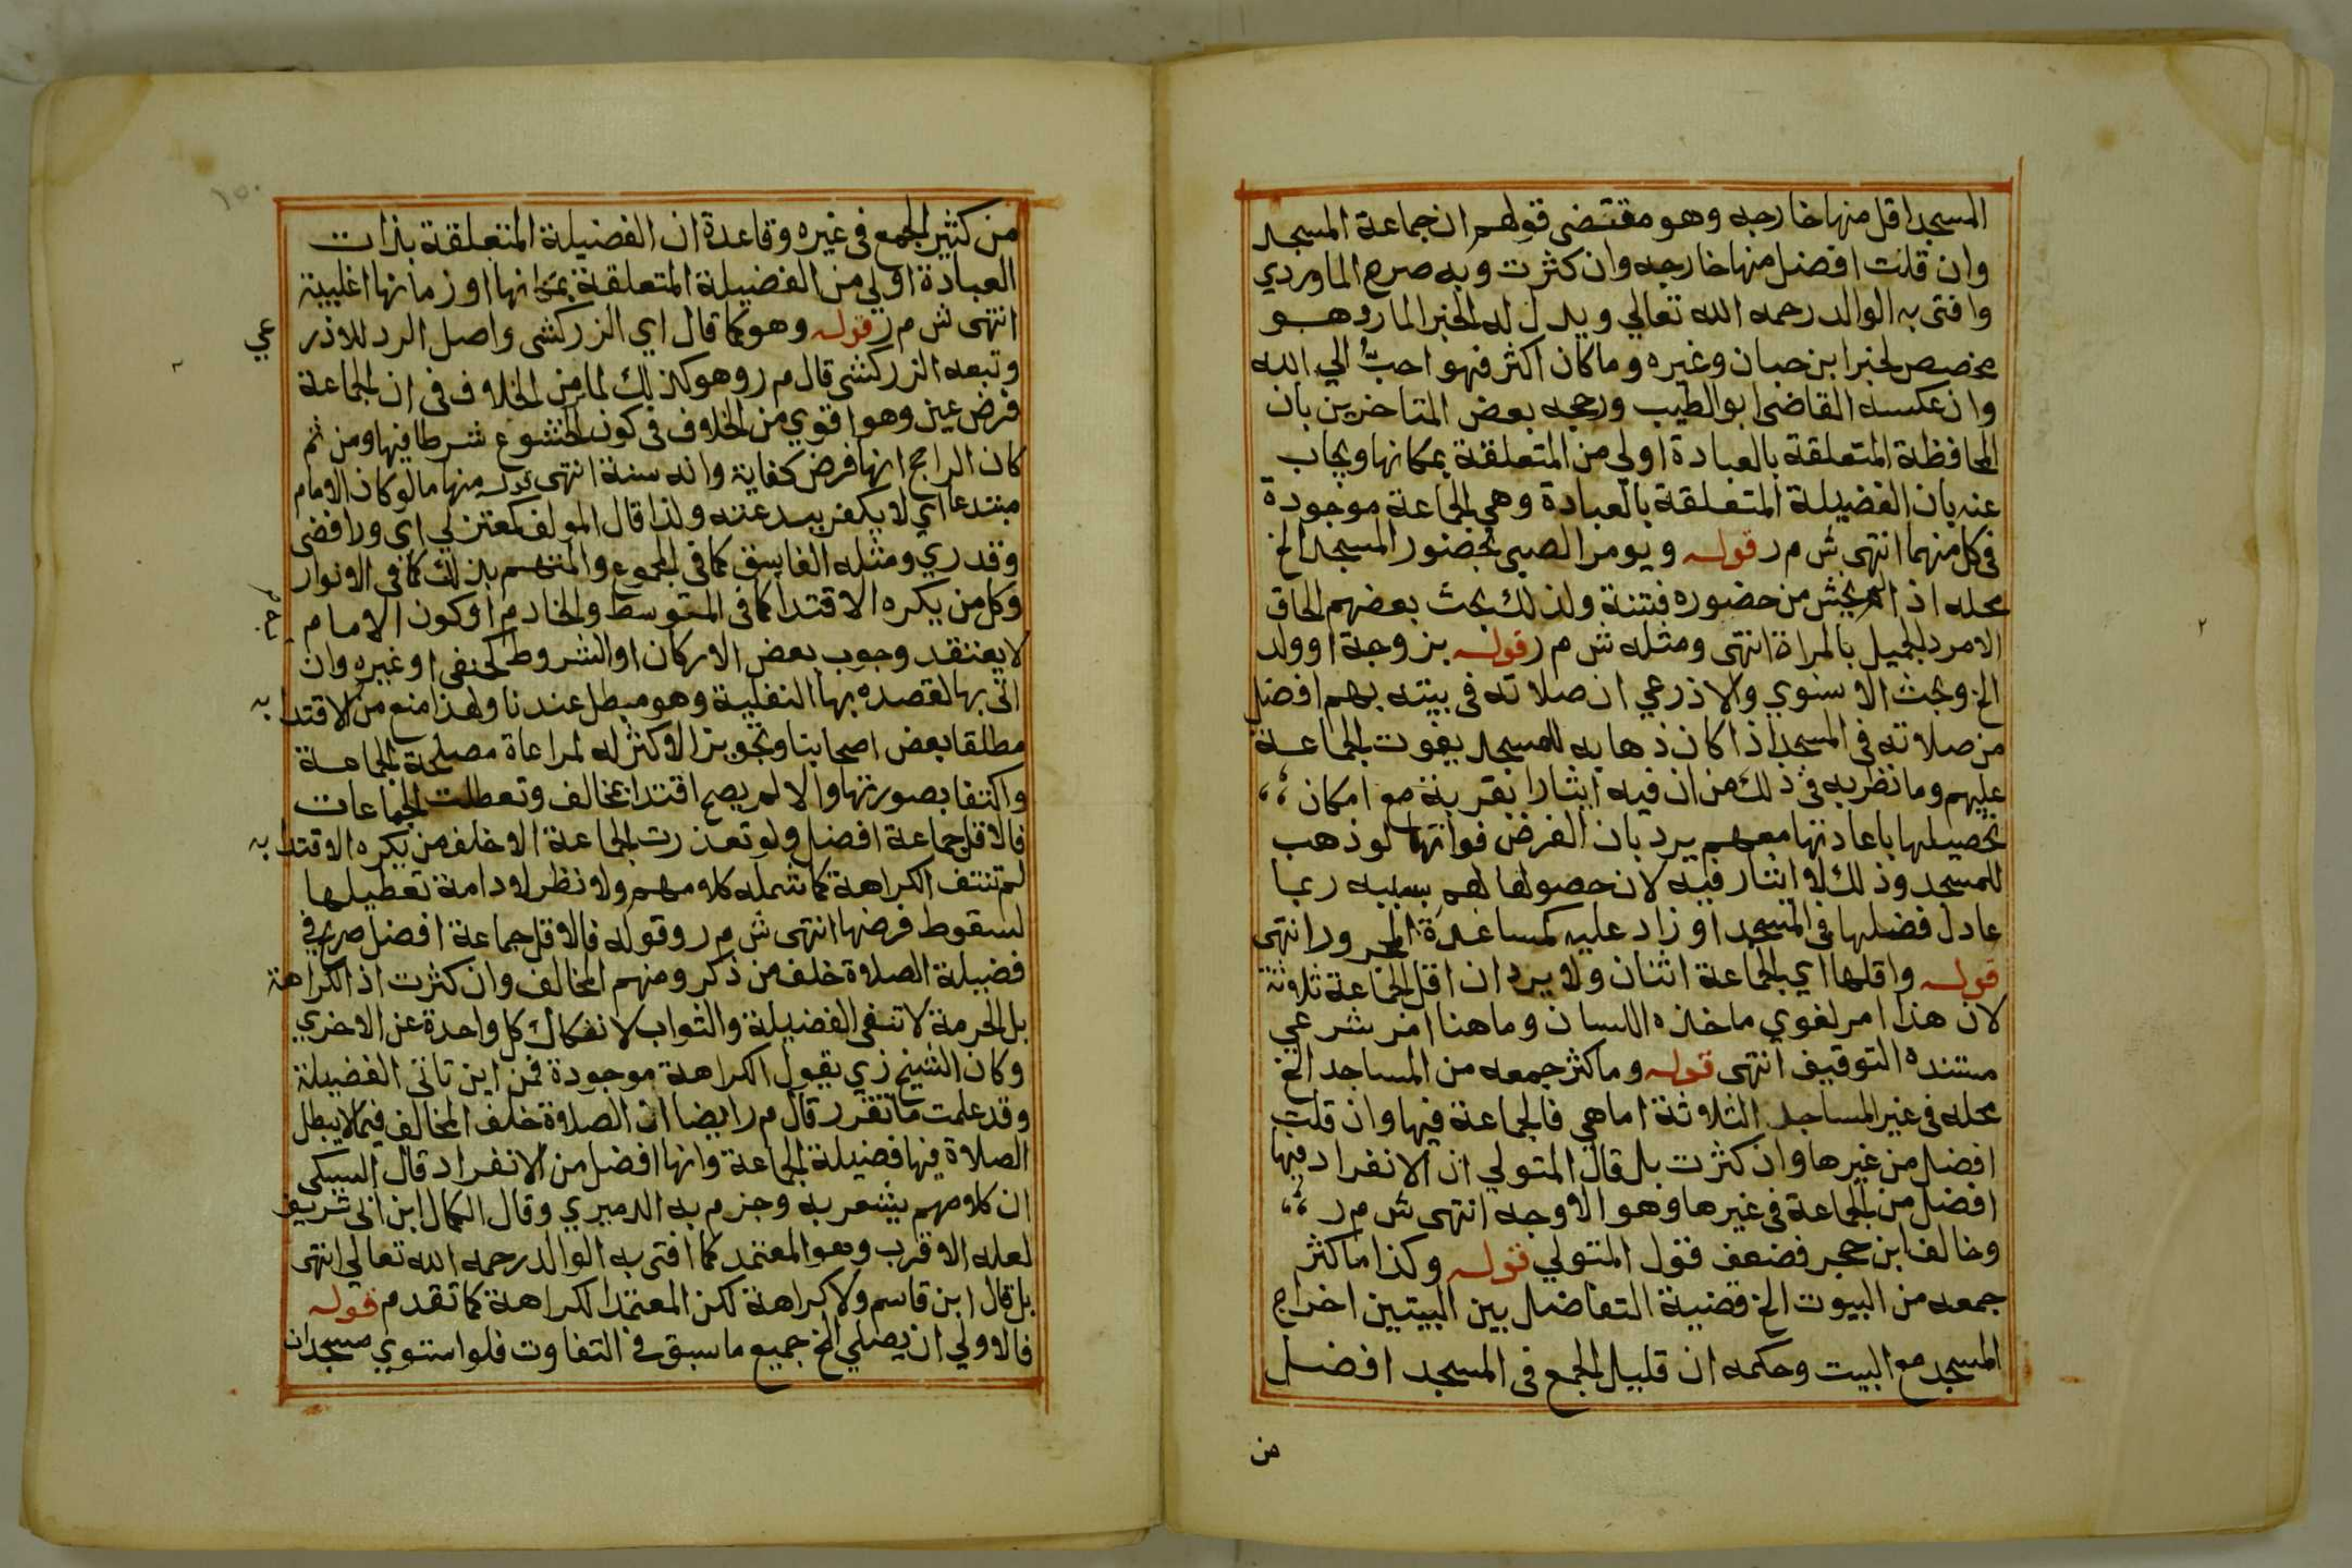 المسجد اقل منها خارجه وهو مقتضى قولهم ان جماعة المسجد
وان قلت افضل منها خارجه وان كثرت وبه صرح الماوردي
وافتى به الوالد رحمه الله تعالي ويدل له الخبر المار وهو
مخصص لخبر ابن حبان وغيره وما كان اكثر فهو احبّ الي الله
وان عكسه القاضى ابو الطيب ورجحه بعض المتاخرين بان
المحافظة المتعلقة بالعبادة اولي من المتعلقة بمكانها ويجاب
عنه بان الفضيلة المتعلقة بالعبادة وهي الجماعة موجودة
فى كل منهما انتهى ش م ر قوله ويومر الصبى بحضور المسجد الخ
محله اذا لم يخش من حضوره فتنة ولذلك بحث بعضهم الحاق
الامرد الجميل بالمراة انتهى ومثله ش م ر قوله بزوجة او ولد
الخ وبحث الاسنوي والاذرعي ان صلاته فى بيته بهم افضل
من صلاته فى المسجد اذا كان ذهابه للمسجد يفوت الجماعة
عليهم وما نظر به فى ذلك من ان فيه ايثارا بقربة مع امكان
تحصيلها باعادتها معهم يرد بان الفرض فواتها لو ذهب
للمسجد وذلك لا ايثار فيه لان حصولها لهم بسببه ربما
عادل فضلها فى المسجد او زاد عليه كمساعدة المجرور انتهى
قوله واقلها اي الجماعة اثنان ولا يرد ان اقل الجماعة ثلاثة
لان هذا امر لغوي ماخذه اللسان وما هنا امر شرعي
مستنده التوقيف انتهى قوله وما كثر جمعه من المساجد الخ
محله فى غير المساجد الثلاثة اما هي فالجماعة فيها وان قلت
افضل من غيرها وان كثرت بل قال المتولي ان الانفراد فيها
افضل من الجماعة فى غيرها وهو الاوجه انتهى ش م ر
وخالف ابن حجر فضعف قول المتولي قوله وكذا ما كثر
جمعه من البيوت الخ قضية التفاضل بين البيتين اخراج
المسجد مع البيت وحكمه ان قليل الجمع فى المسجد افضل
من
٢
١٥٠
من كثير الجمع فى غيره وقاعدة ان الفضيلة المتعلقة بذات
العبادة اولي من الفضيلة المتعلقة بمكانها او زمانها اغلبية
انتهى ش م ر قوله وهو كما قال اي الزركشى واصل الرد للاذر
عي
وتبعه الزركشى قال م ر وهو كذلك لما من الخلاف فى ان الجماعة
فرض عين وهو اقوي من الخلاف فى كون الخشوع شرطا فيها ومن ثم
كان الراجح انها فرض كفاية وانه سنة انتهى قوله منها ما لو كان الامام
مبتدعا اي لا يكفر ببدعته ولذا قال المولف كمعتزلي اى ورافضى
وقدري ومثله الفاسق كما فى المجموع والمتهم بذلك كما فى الانوار
وكل من يكره الاقتدا كما فى المتوسط والخادم او كون الامام
لا يعتقد وجوب بعض الاركان او الشروط كحنفى او غيره وان
اتى بها لقصده بها النفلية وهو مبطل عندنا ولهذا منع من الاقتدا به
مطلقا بعض اصحابنا وتجويز الاكثر له لمراعاة مصلحة الجماعة
واكتفا بصورتها والا لم يصح اقتدا بمخالف وتعطلت الجماعات
فالاقل جماعة افضل ولو تعذرت الجماعة الا خلف من يكره الاقتدا به
لم تنتف الكراهة كما شمله كلامهم ولا نظر لادامة تعطيلها
لسقوط فرضها انتهى ش م ر وقوله فالاقل جماعة افضل صريح فى
فضيلة الصلاة خلف من ذكر ومنهم المخالف وان كثرت اذ الكراهة
بل الحرمة لا تنفى الفضيلة والثواب لانفكاك كل واحدة عن الاخري
وكان الشيخ زي يقول الكراهة موجودة فمن اين تاتى الفضيلة
وقد علمت ما تقرر قال م ر ايضا ان الصلاة خلف المخالف فيما لا يبطل
الصلاة فيها فضيلة الجماعة وانها افضل من الانفراد قال السبكى
ان كلامهم يشعر به وجزم به الدميري وقال الكمال ابن ابى شريف
لعله الاقرب وهو المعتمد كما افتى به الوالد رحمه الله تعالي انتهى
بل قال ابن قاسم ولا كراهة لكن المعتمد الكراهة كما تقدم قوله
فالاولي ان يصلي الخ جميع ما سبق فى التفاوت فلو استوي مسجدان